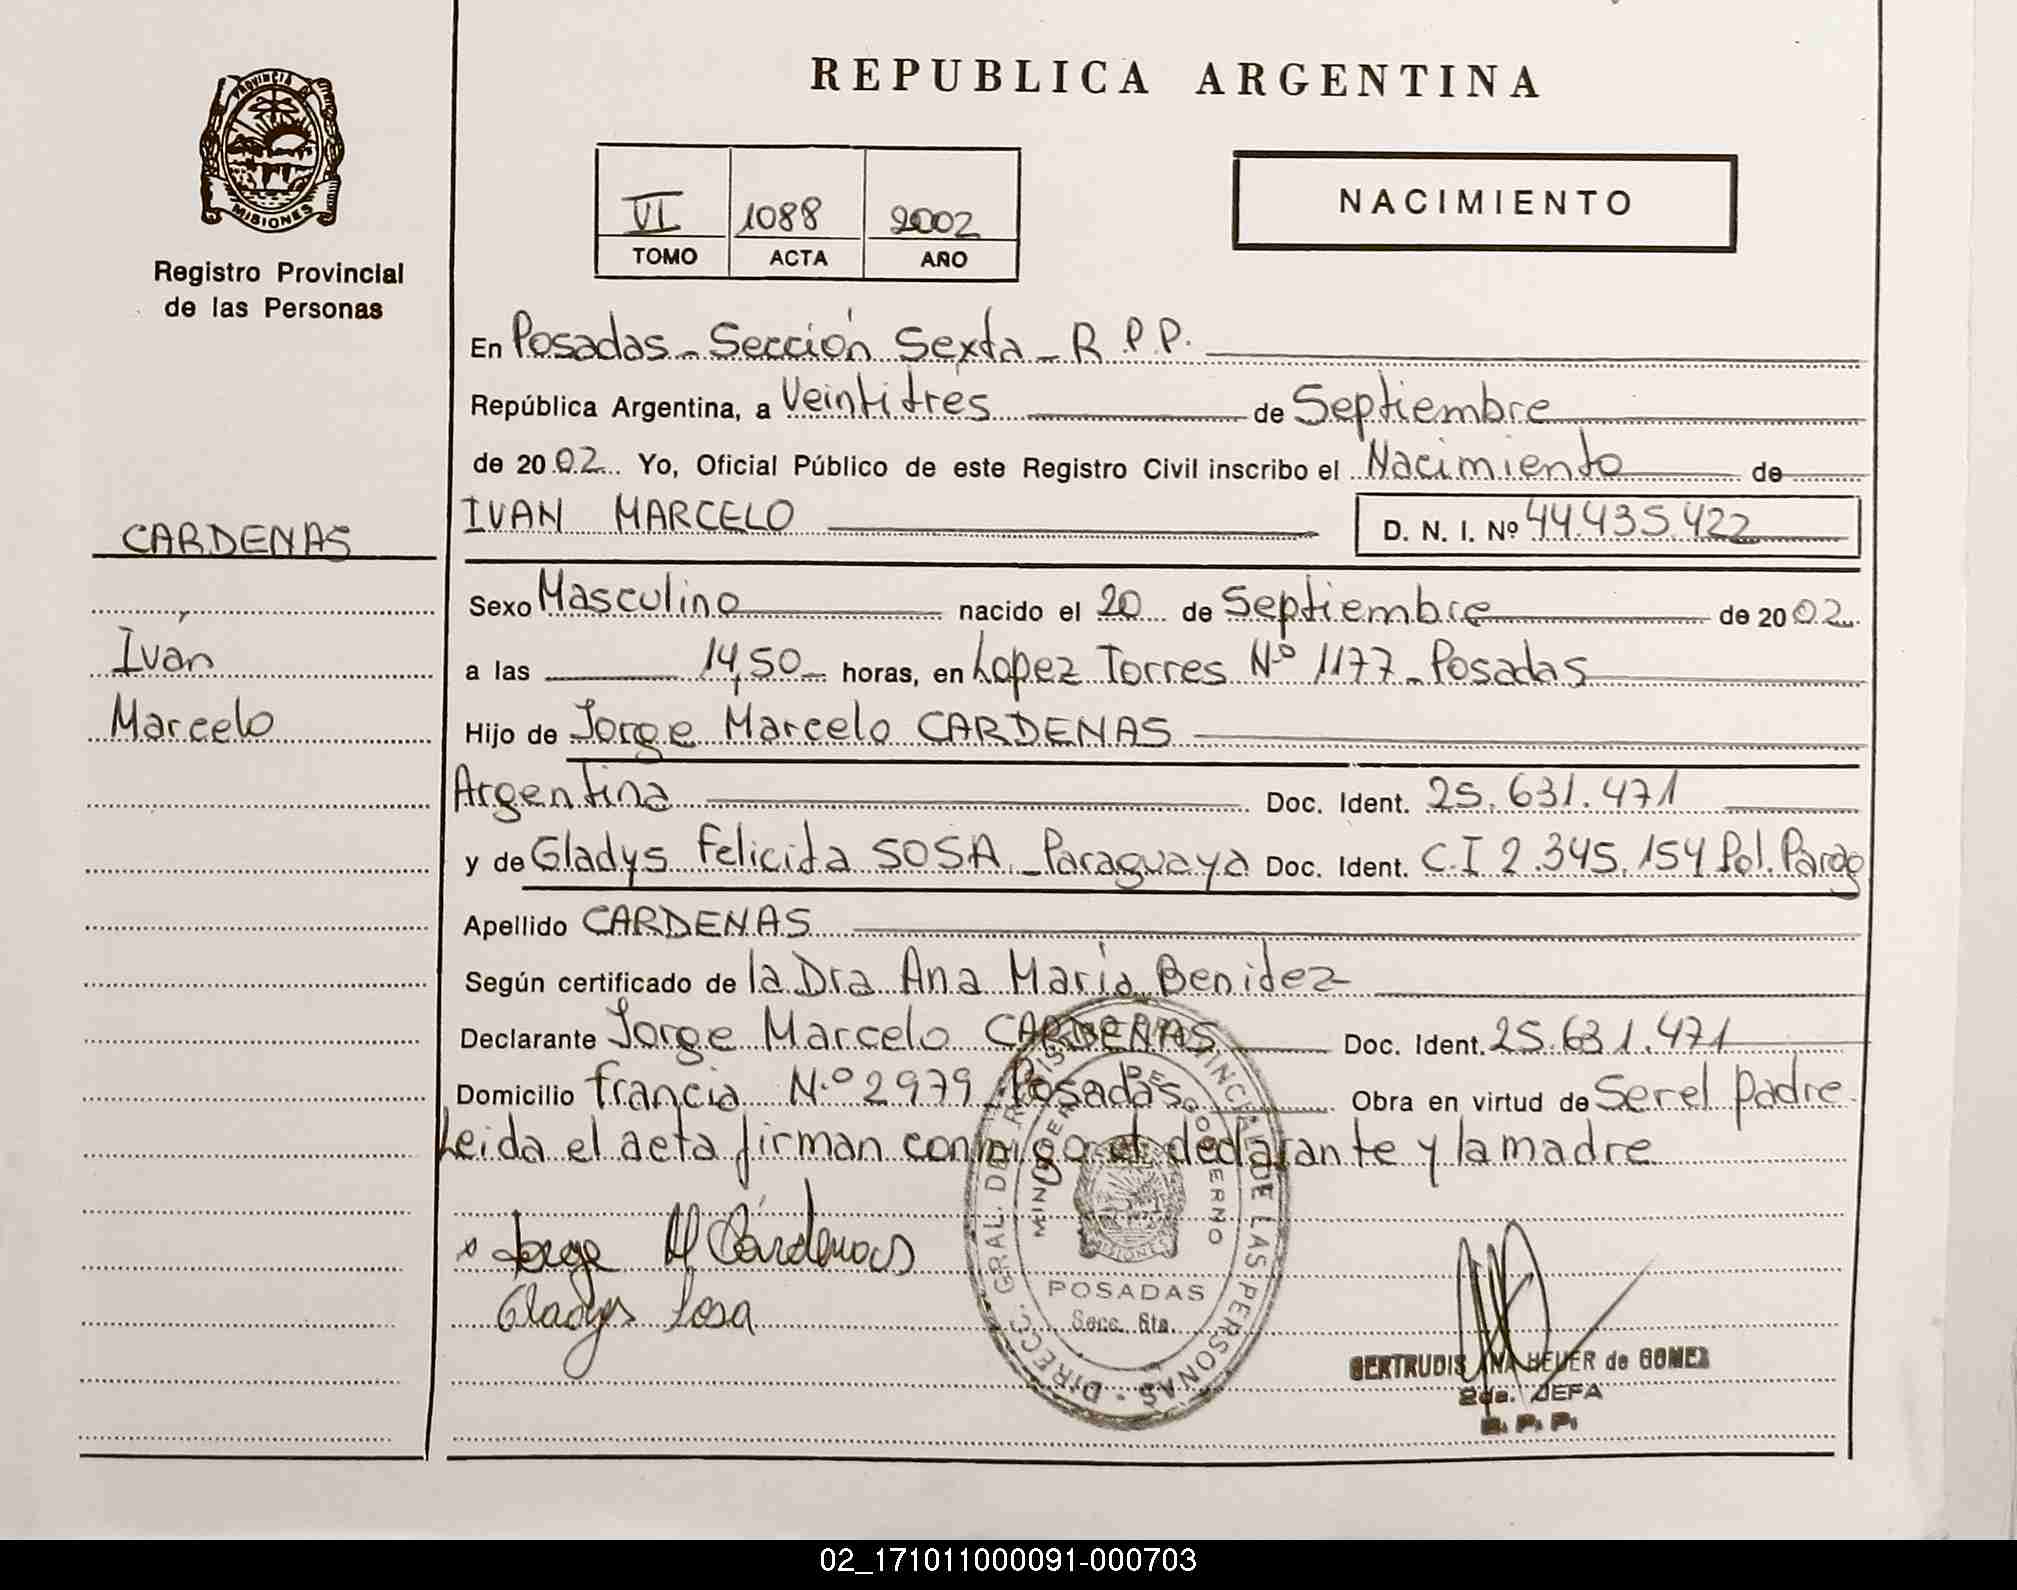 REPUBLICA ARGENTINA
PROVINCIA DE
MISIONES
Registro Provincial
de las Personas
VI 1088 2002
TOMO ACTA AÑO
NACIMIENTO
En Posadas - Sección Sexta - R.P.P.
República Argentina, a Veintitrés de Septiembre
de 2002. Yo, Oficial Público de este Registro Civil inscribo el Nacimiento de
IVAN MARCELO D. N. I. Nº 44.435.422
CARDENAS
Iván
Marcelo
Sexo Masculino nacido el 20 de Septiembre de 2002
a las 14,50 horas, en Lopez Torres Nº 1177 - Posadas
Hijo de Jorge Marcelo CARDENAS
Argentina Doc. Ident. 25.631.471
y de Gladys Felicita SOSA - Paraguaya Doc. Ident. C.I 2.345.154 Pol.
Apellido CARDENAS
Según certificado de la Dra Ana María Benidez
Declarante Jorge Marcelo CARDENAS Doc. Ident. 25.631.471
Domicilio Francia N.º 2979 Posadas Obra en virtud de Ser el padre.
Leida el acta firman conmigo el declarante y la madre
x Jorge M Cárdenas
Gladys Sosa
DIRECC. GRAL. DEL REGISTRO PROVINCIAL DE LAS PERSONAS
MINISTERIO DE GOBIERNO
MISIONES
POSADAS
Secc. 6ta.
GERTRUDIS ANA HEUER de GOMEZ
2da. JEFA
R. P. P.
02_171011000091-000703